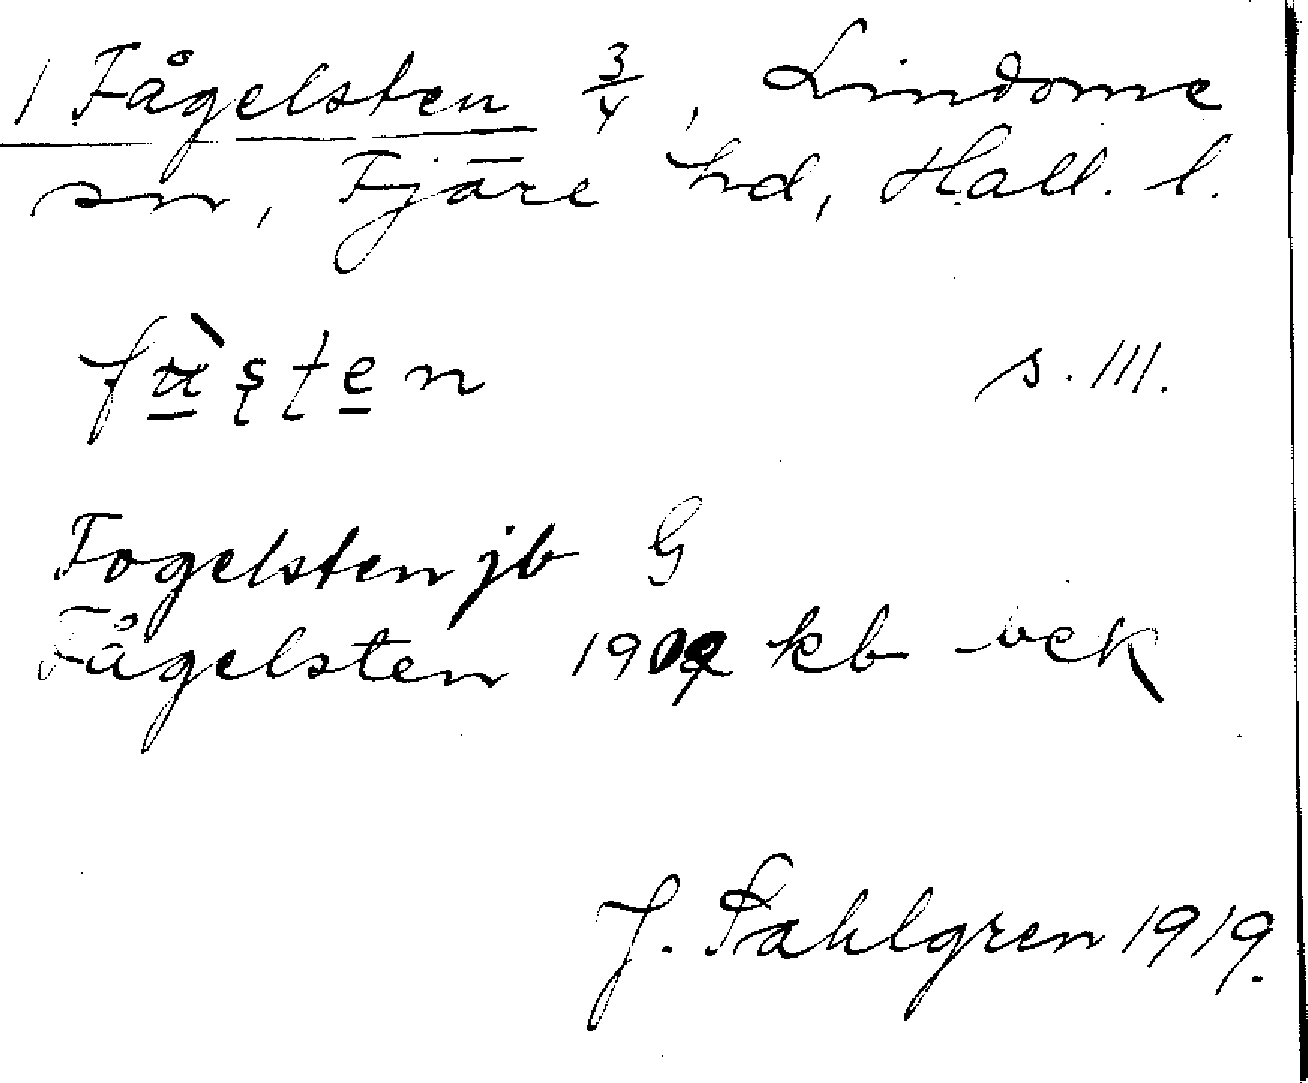 1 Fågelsten 3/4, Lindome
sn, Fjäre hd, Hall. l.
s. 111.
Fogelsten jb G
Fågelsten kb
J. Sahlgren 1919.